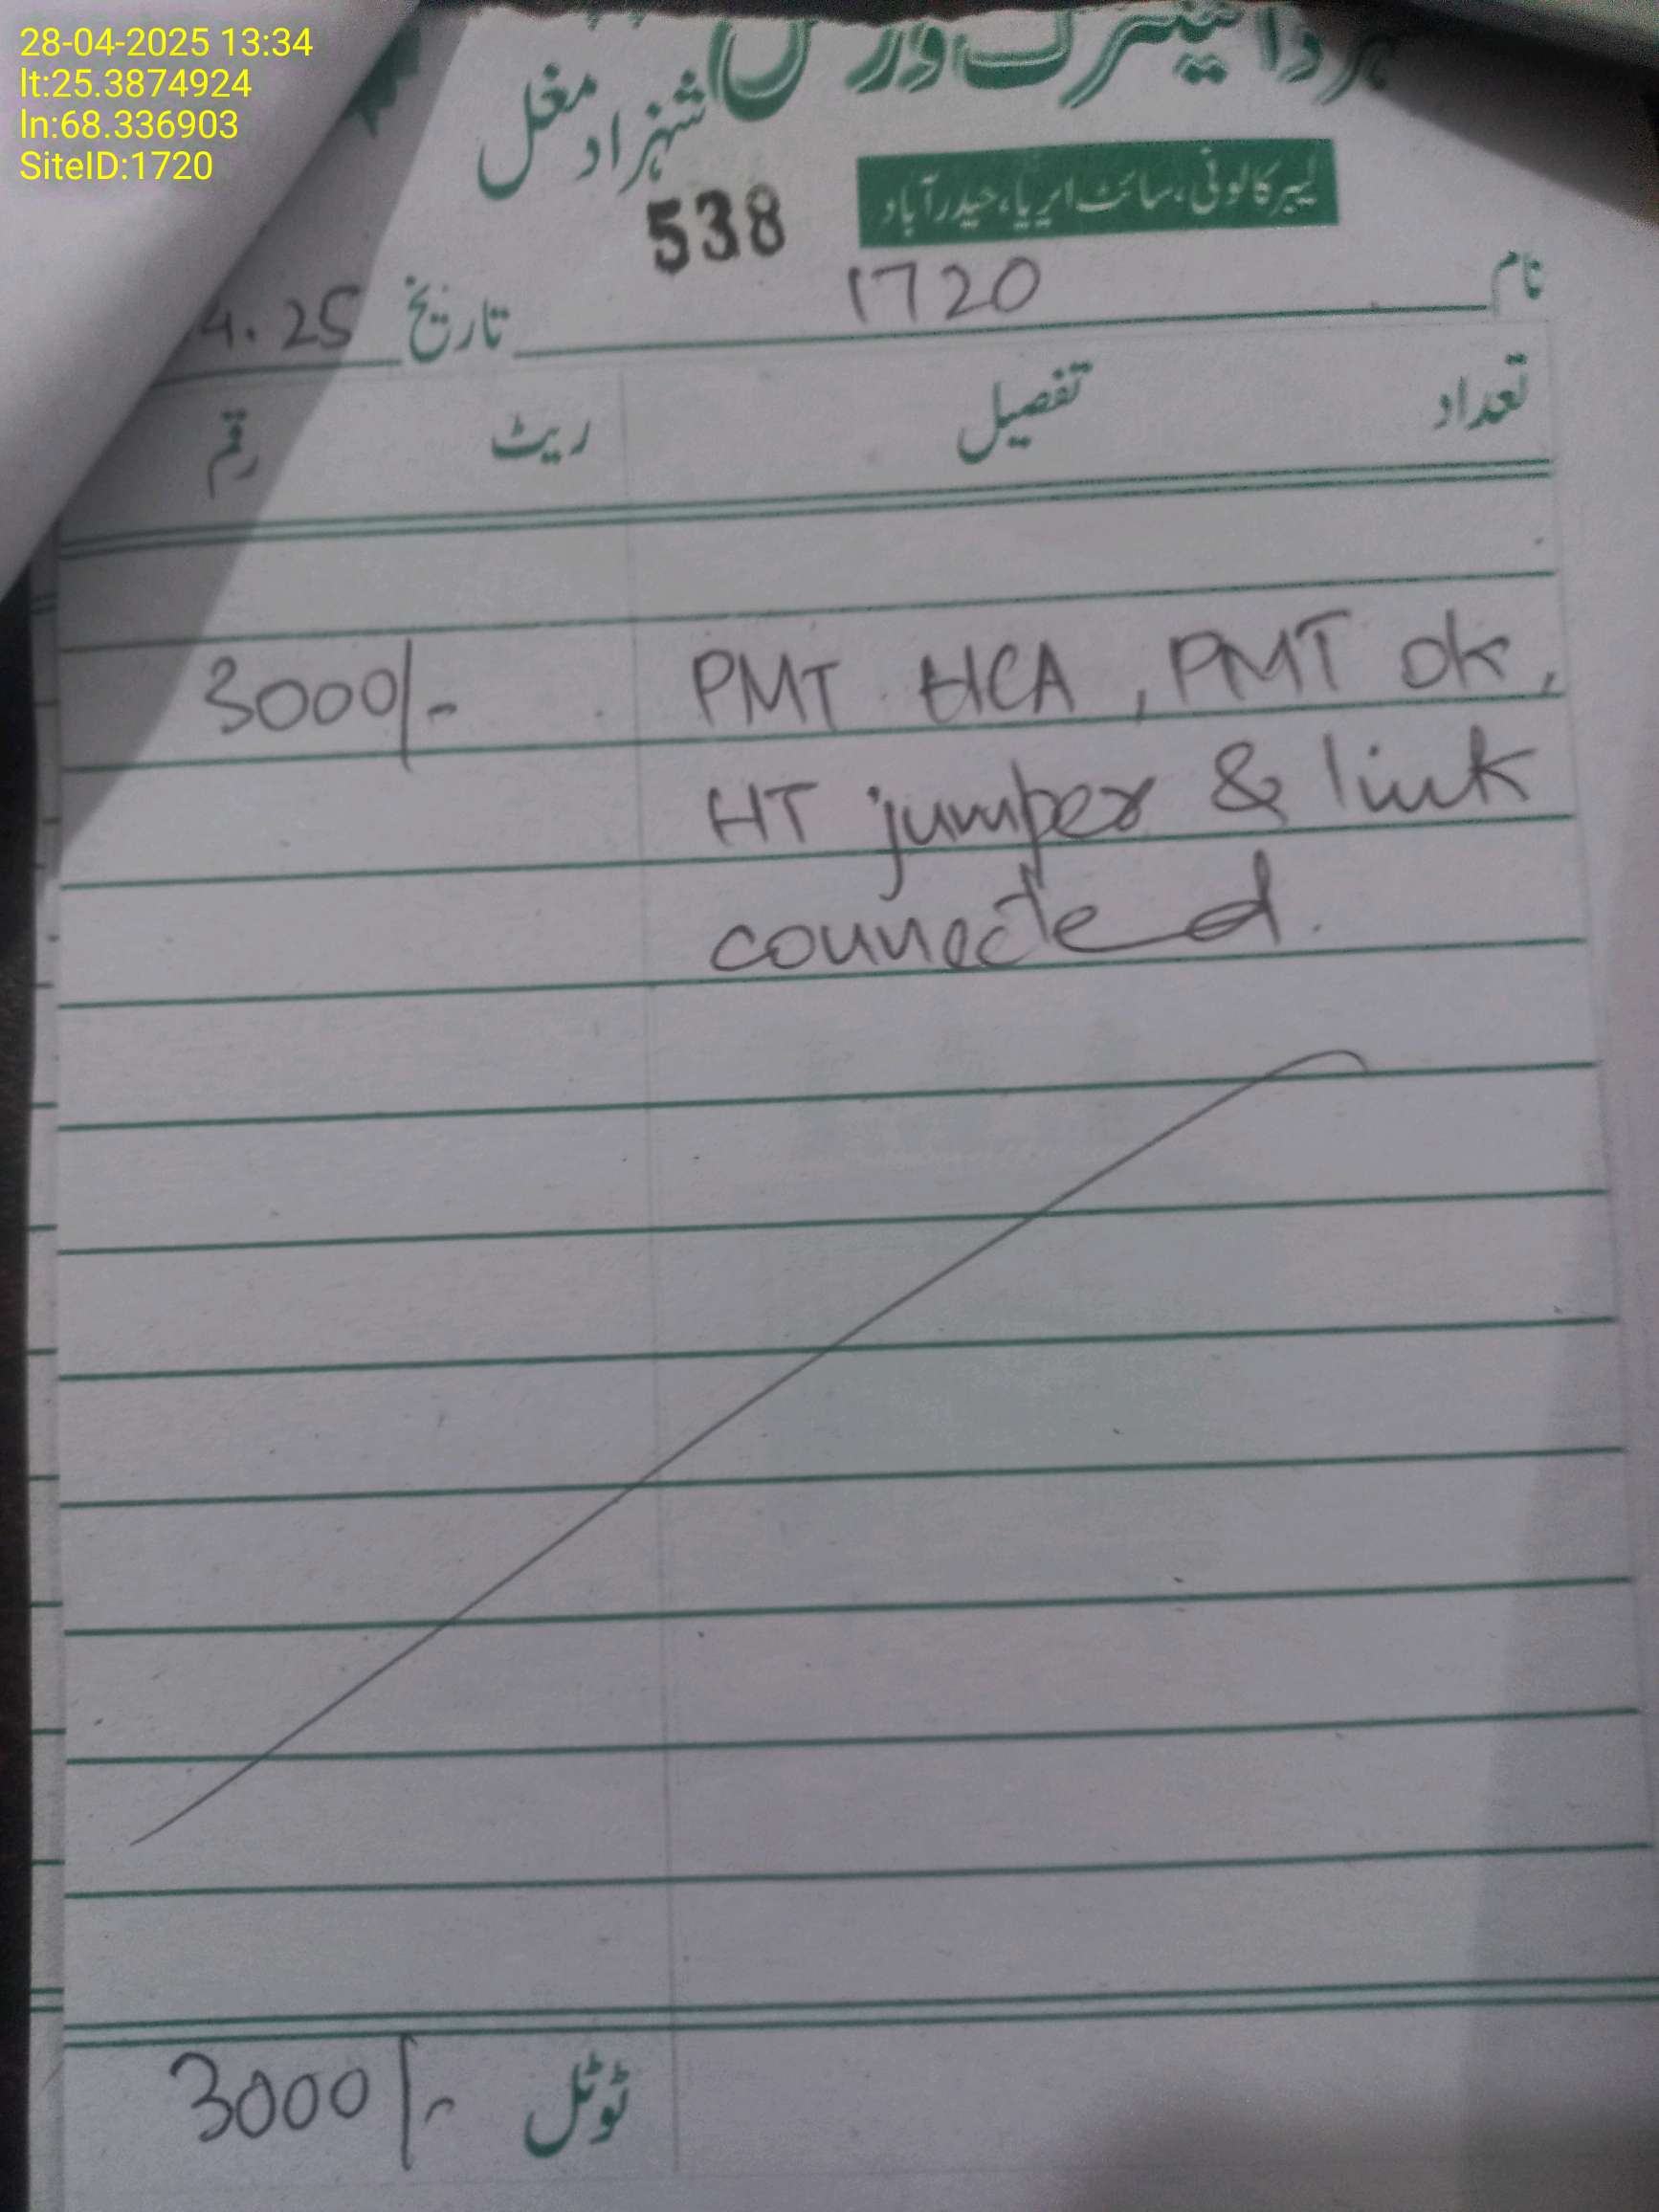 28-04-2025 13:34
lt:25.3874924
ln:68.336903
SiteID:1720
ورکس
شہزاد مغل
لیبر کالونی، سائٹ ایریا، حیدر آباد
538
نام 1720 تاریخ 4.25
تعداد تفصیل ریٹ رقم
PMT HCA, PMT ok, 3000/-
HT jumper & link
connected.
ٹوٹل 3000/-